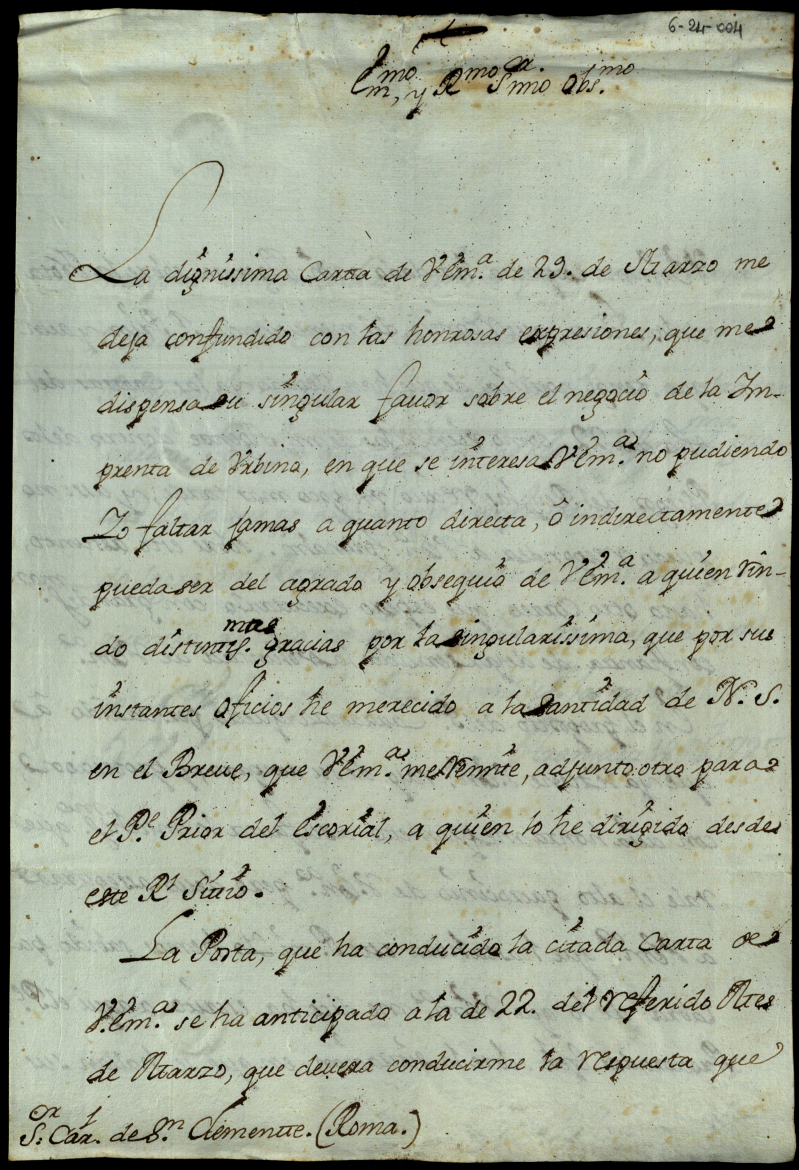 6-24-004
Em.mo y R.mo S.or mio Obs.mo
La digníssima Carta de VEm.ª de 29. de Marzo me
deja confundido con las honrosas expresiones, que me
dispensa su singular favor sobre el negocio de la Im-
prenta de Vrbina, en que se interesa VEm.ª no pudiendo
Yo faltar jamas a quanto directa, ô indirectamente
pueda ser del agrado y obsequio de VEm.ª a quien rin-
do distintis.mas gracias por la singularissima, que por sus
instantes oficios he merecido a la Santidad de N. S.
en el Breue, que VEm.ª me remite, adjunto otro para
el P.e Prior del Escorial, a quien lo he dirigido desde
este R.l Sitio.
La Posta, que ha conducido la citada Carta de
VEm.ª se ha anticipado a la de 22. del referido Mes
de Marzo, que deuera conducirme la respuesta que
S.or Car.l de S.n Clemente. (Roma.)